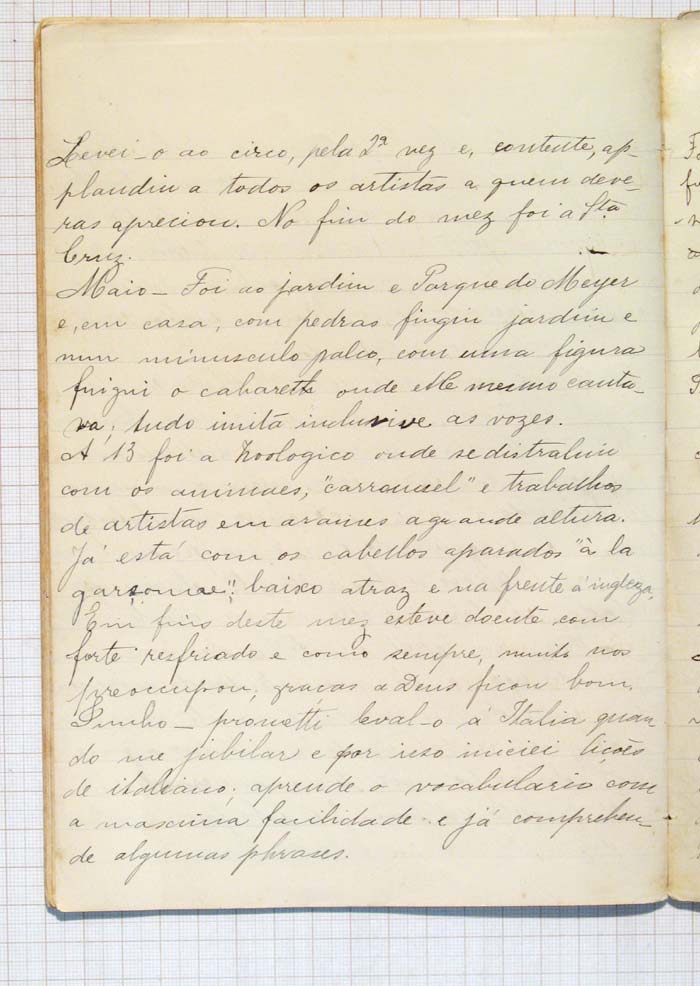 Levei-o ao circo, pela 2ª vez e, contente, ap-
plaudiu a todos os artistas a quem deve-
ras apreciou. No fim do mez foi a Sta
Cruz.
Maio - Foi ao jardim e Parque do Meyer
e, em casa, com pedras fingiu jardim e
num minusculo palco, com uma figura
fingiu o cabarett onde elle mesmo canta-
va; tudo imita inclusive as vozes.
A 13 foi a Zoologico onde se distrahiu
com os animaes, "carroussel" e trabalhos
de artistas em arames a grande altura.
Já está com os cabellos aparados "à la
garsonne"; baixo atraz e na frente á ingleza.
Em fins deste mez esteve doente com
forte resfriado e como sempre, muito nos
preoccupou; graças a Deus ficou bom.
Junho - prometti leval-o á Italia quan
do me jubilar e por isso iniciei lições
de italiano; aprende o vocabulario com
a maxima facilidade e já comprehen-
de algumas phrases.